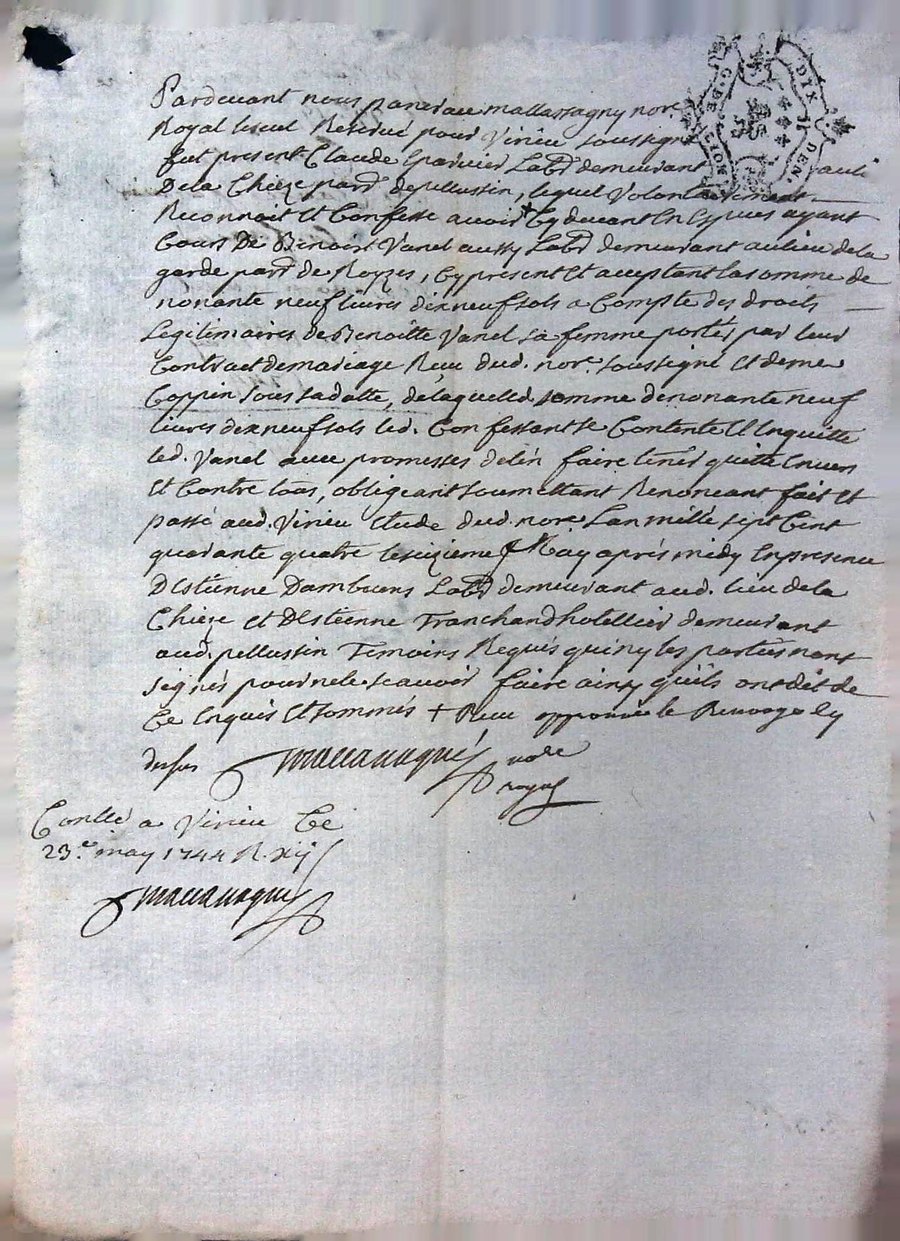 Pardevant nous mallassagny nore
Royal Reservé pour Virieu soussigné
fut present Claude Labr demeurant au li
De la Chieze parr de pellussin, lequel Volontairement
Reconnoit et Confesse avoir + Cy devant En Espèces ayant
Cours De Benoist Vanel aussy Labr demeurant au lieu de la
garde parr de Royzes, Cy present et acceptant la somme de
nonante neuf livres dix neuf sols a Compte des droits
Legitimaires de Benoitte Vanel sa femme portés par leur
Contract de mariage Receu dud. nore. soussigné et de me
Coppin sous sa datte, de laquelle somme de nonante neuf
livres dix neuf sols led. Confessant se Contente et En quitte
led. Vanel avec promesses de l'en faire tenir quitte Envers
Et Contre tous, obligeant soumettant Renonceant fait et
passé aud. Virieu Etude dud. nore. Lan mille sept Cent
quarante quatre le seizieme May aprés midy En presence
D'Estienne Dambuens Labr demeurant aud. lieu de la
Chieze et D'Estienne Tranchand hotellier demeurant
aud. pellussin Temoins Requis qui ny les parties n'ont
signés pour ne le scavoir faire ainsy quils ont dit de
Ce Enquis et sommés + Receu approuvé le Renvoy Cy
dessus nore
royal
Conlle a Virieu Ce
23.e may 1744 R. xij s
GE DE LION
DIX DEN.